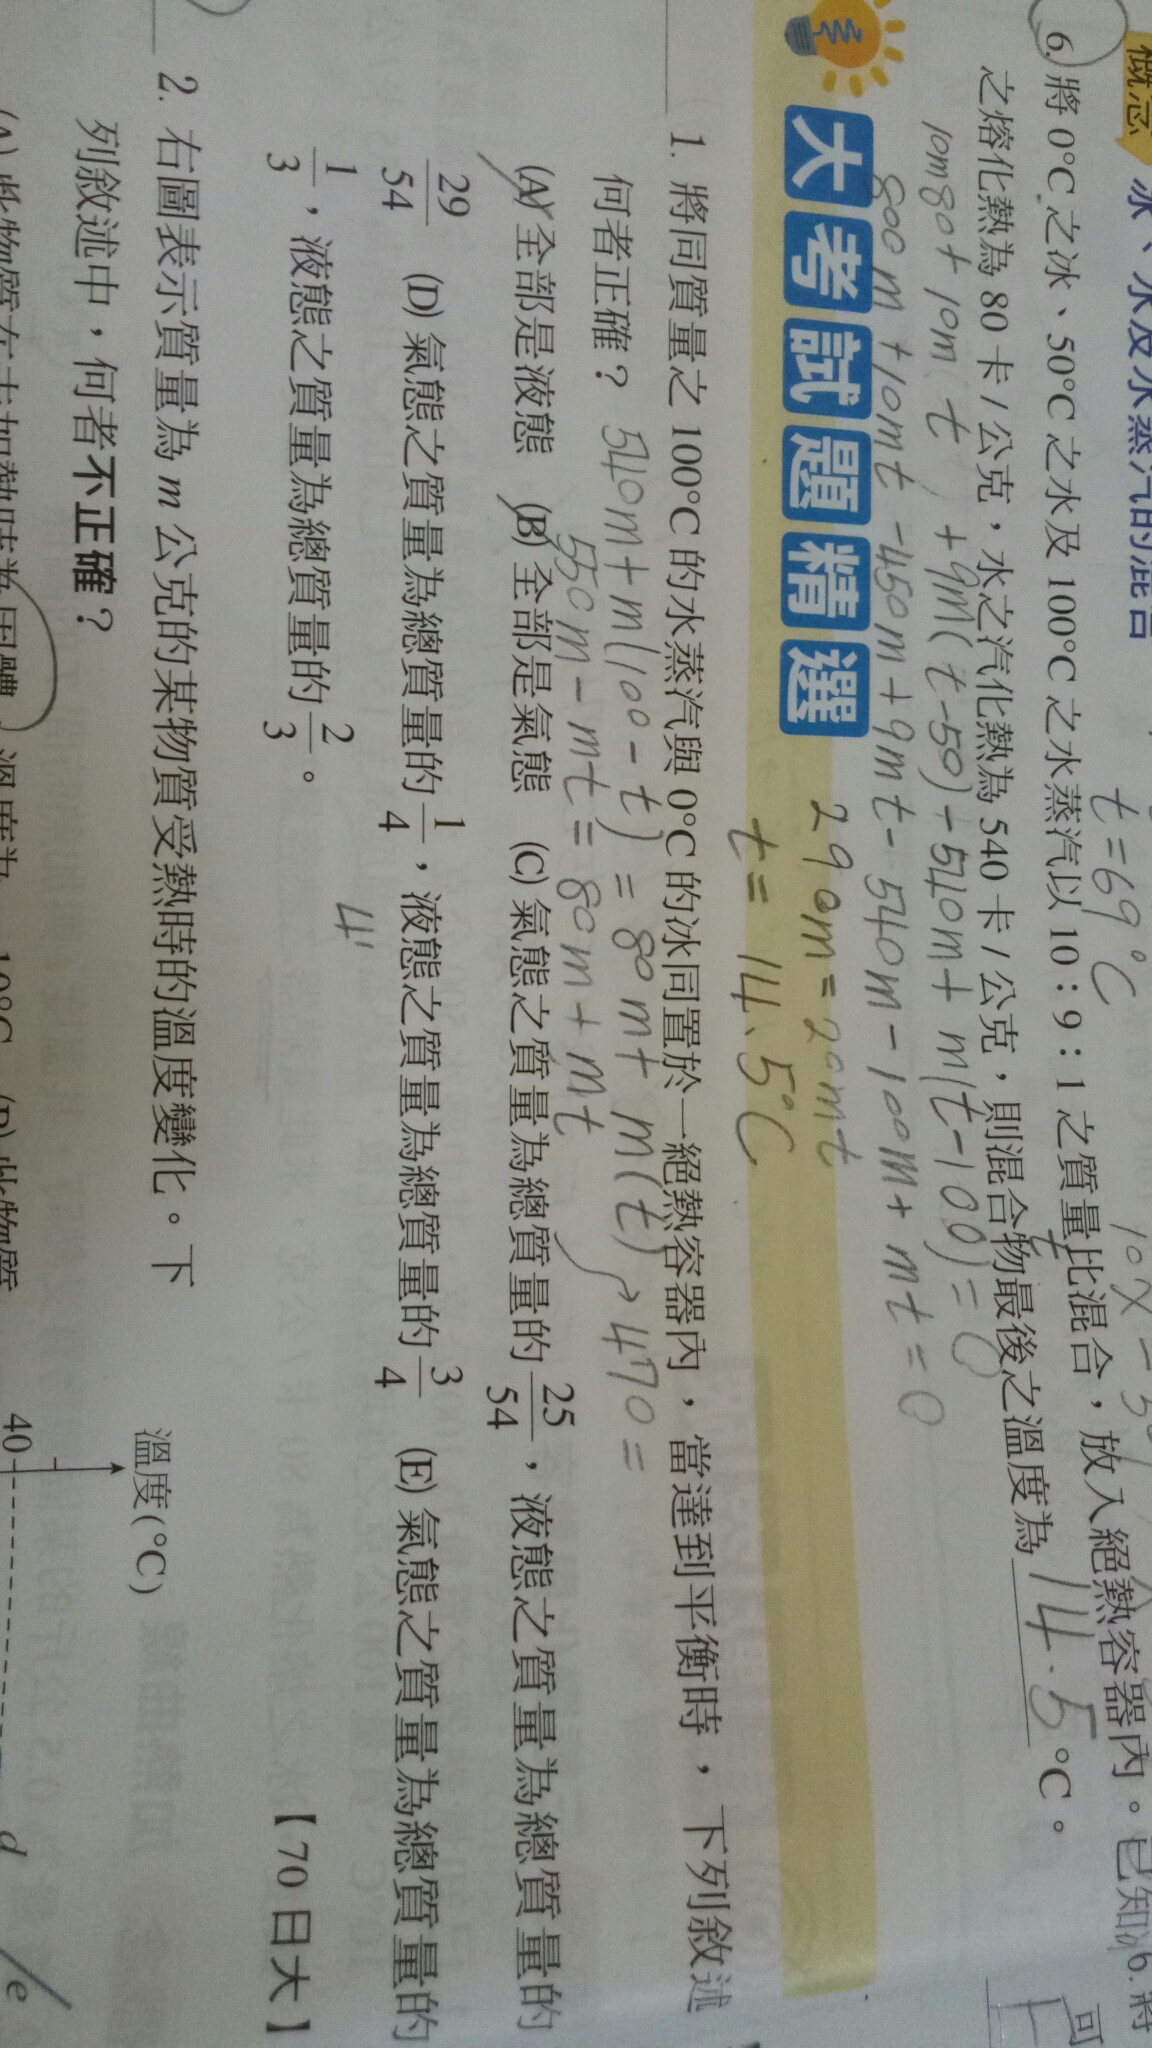 概念 冰、水及水蒸汽的混合
t=69°C
6. 將 0°C 之冰、50°C 之水及 100°C 之水蒸汽以 10:9:1 之質量比混合,放入絕熱容器內。已知冰
之熔化熱為 80 卡/公克,水之汽化熱為 540 卡/公克,則混合物最後之溫度為 14.5 °C。
10m80+10m t +9m(t-50)-540m+m(t-100)=0
800m+10mt-450m+9mt-540m-100m+mt=0
290m=20mt
t=14.5°C
大考試題精選
1. 將同質量之 100°C 的水蒸汽與 0°C 的冰同置於一絕熱容器內,當達到平衡時,下列敘述
何者正確? 540m+m(100-t)=80m+m(t) →470=
550m-mt=80m+mt
(A) 全部是液態 (B) 全部是氣態 (C) 氣態之質量為總質量的 25/54,液態之質量為總質量的
29/54 (D) 氣態之質量為總質量的 1/4,液態之質量為總質量的 3/4 (E) 氣態之質量為總質量的
1/3,液態之質量為總質量的 2/3。 【70 日大】
2. 右圖表示質量為 m 公克的某物質受熱時的溫度變化。下
列敘述中,何者不正確?
溫度(°C)
40
d
e